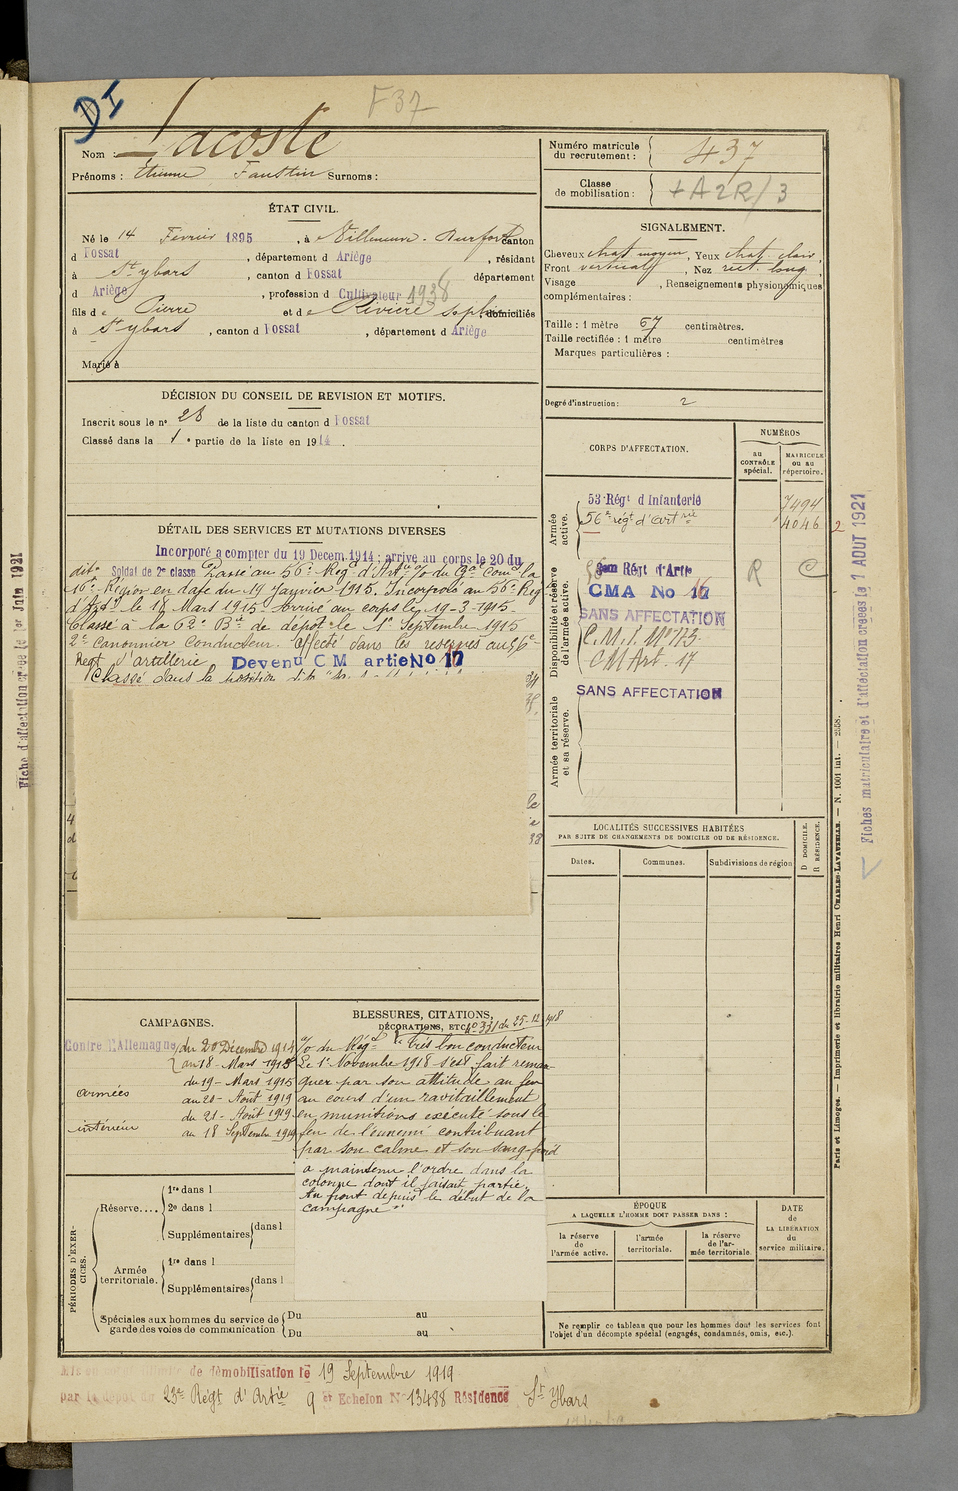 DI
F37
Nom : Lacoste
Prénoms : Etienne Faustin Surnoms :
Numéro matricule du recrutement : 437
Classe de mobilisation : +A2R/3
ÉTAT CIVIL.
Né le 14 Février 1895, à Villeneuve-Durfort canton
d Fossat, département d Ariège, résidant
à St ybars, canton d Fossat département
d Ariège, profession d Cultivateur 1938
fils de Pierre et de Rivière Sophie domiciliés
à St ybars, canton d Fossat, département d Ariège
Marié à
SIGNALEMENT.
Cheveux chat. moyen, Yeux chat. clair,
Front vertical, Nez rect. long,
Visage , Renseignements physionomiques
complémentaires :
Taille : 1 mètre 67 centimètres.
Taille rectifiée : 1 mètre centimètres
Marques particulières :
Degré d'instruction : 2
DÉCISION DU CONSEIL DE REVISION ET MOTIFS.
Inscrit sous le n° 28 de la liste du canton d Fossat
Classé dans la 1e partie de la liste en 1914.
DÉTAIL DES SERVICES ET MUTATIONS DIVERSES
Incorporé à compter du 19 Decem. 1914 : arrivé au corps le 20 du
dit. Soldat de 2e classe Passé au 56e Régt d'Artie
16e Région en date du 19 Janvier 1915. Incorporé au 56e Régt
d'Artie le 18 Mars 1915. Arrivé au corps le 19-3-1915.
Classé à la 62e Bie de dépôt le 1er Septembre 1915
2e canonnier conducteur. Affecté dans les réserves au 56e
Régt d'artillerie Devenu C M artie No 17
Classé dans la position dite
CORPS D'AFFECTATION.
NUMÉROS
au CONTRÔLE spécial.
MATRICULE ou au répertoire.
Armée active.
53e Régt d'Infanterie 7494
56e régt d'artrie 4046
2
Disponibilité et réserve de l'armée active.
Régt d'Artie R C
CMA No 17 16
SANS AFFECTATION
C.M.I. No 173
CM Art. 17
SANS AFFECTATION
Armée territoriale et sa réserve.
LOCALITÉS SUCCESSIVES HABITÉES
PAR SUITE DE CHANGEMENTS DE DOMICILE OU DE RÉSIDENCE.
Dates.
Communes.
Subdivisions de région
D DOMICILE.
R RÉSIDENCE.
CAMPAGNES.
Contre l'Allemagne du 20 Décembre 1914
au 18 - Mars 1915
du 19 - Mars 1915
armées au 20 - Août 1919
du 21 - Août 1919
intérieur au 18 Septembre 1919
BLESSURES, CITATIONS,
DÉCORATIONS, ETC. No 331 du 25-12-1918
du Régt "Très bon conducteur
Le 1er Novembre 1918 s'est fait remar-
quer par son attitude au feu
au cours d'un ravitaillement
en munitions exécuté sous le
feu de l'ennemi contribuant
par son calme et son sang froid
a maintenu l'ordre dans la
colonne dont il faisait partie.
Au front depuis le début de la
campagne"
PÉRIODES D'EXERCICES.
Réserve....
1re dans l
2e dans l
Supplémentaires dans l
Armée territoriale.
1re dans l
Supplémentaires dans l
Spéciales aux hommes du service de garde des voies de communication
Du au
Du au
ÉPOQUE
A LAQUELLE L'HOMME DOIT PASSER DANS :
la réserve de l'armée active.
l'armée territoriale.
la réserve de l'armée territoriale.
DATE de LA LIBÉRATION du service militaire.
Ne remplir ce tableau que pour les hommes dont les services font
l'objet d'un décompte spécial (engagés, condamnés, omis, etc.).
de démobilisation le 19 Septembre 1919
par le dépôt du 23e Régt d'Artie 9 et Echelon No 13488 Résidence St Ybars
Fiche d'affectation créée le 1er Juin 1921
Fiches matriculaire et d'affectation créées le 7 AOUT 1921
Paris et Limoges. — Imprimerie et librairie militaires Henri CHARLES-LAVAUZELLE. — N. 1001 int. — 2558.